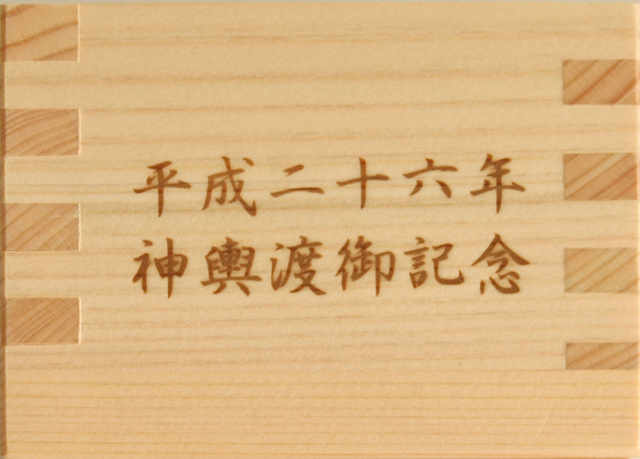 平成二十六年
神輿渡御記念